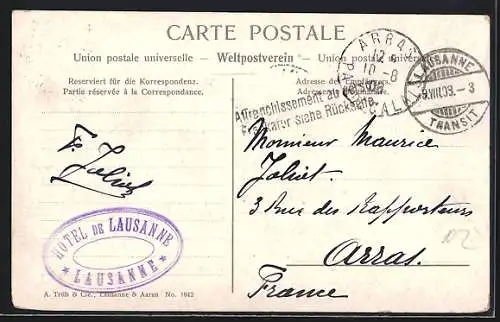 CARTE POSTALE
Union postale universelle — Weltpostverein — Union postale
Reserviert für die Korrespondenz.
Partie réservée à la Correspondance.
Adresse
ARRAS
12
10-8
LAUSANNE
VIII.09.-3
TRANSIT
Affranchissement au
siehe Rückseite.
F. Joliet
Monsieur Maurice
Joliet.
3 Rue des Rapporteurs
Arras.
France
HOTEL DE LAUSANNE
* LAUSANNE *
A. Trüb & Cie., Lausanne & Aarau No. 1642